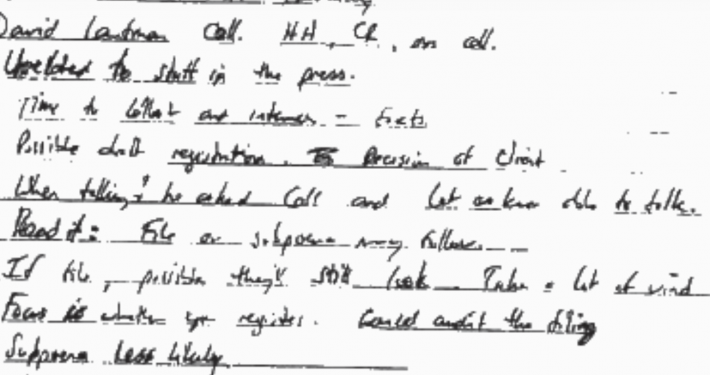 David Laufman Call. HH, CR, on call.
Unrelated to stuff in the press.
Time to collect and interview - facts
Possible draft registration. Decision of client.
When talking, he asked call and let us know able to talk.
Read it: File or subpoena may follow.
If file, possible they'll still look. Takes a lot of wind
Focus is whether you register. Could audit the filing
Subpoena less likely